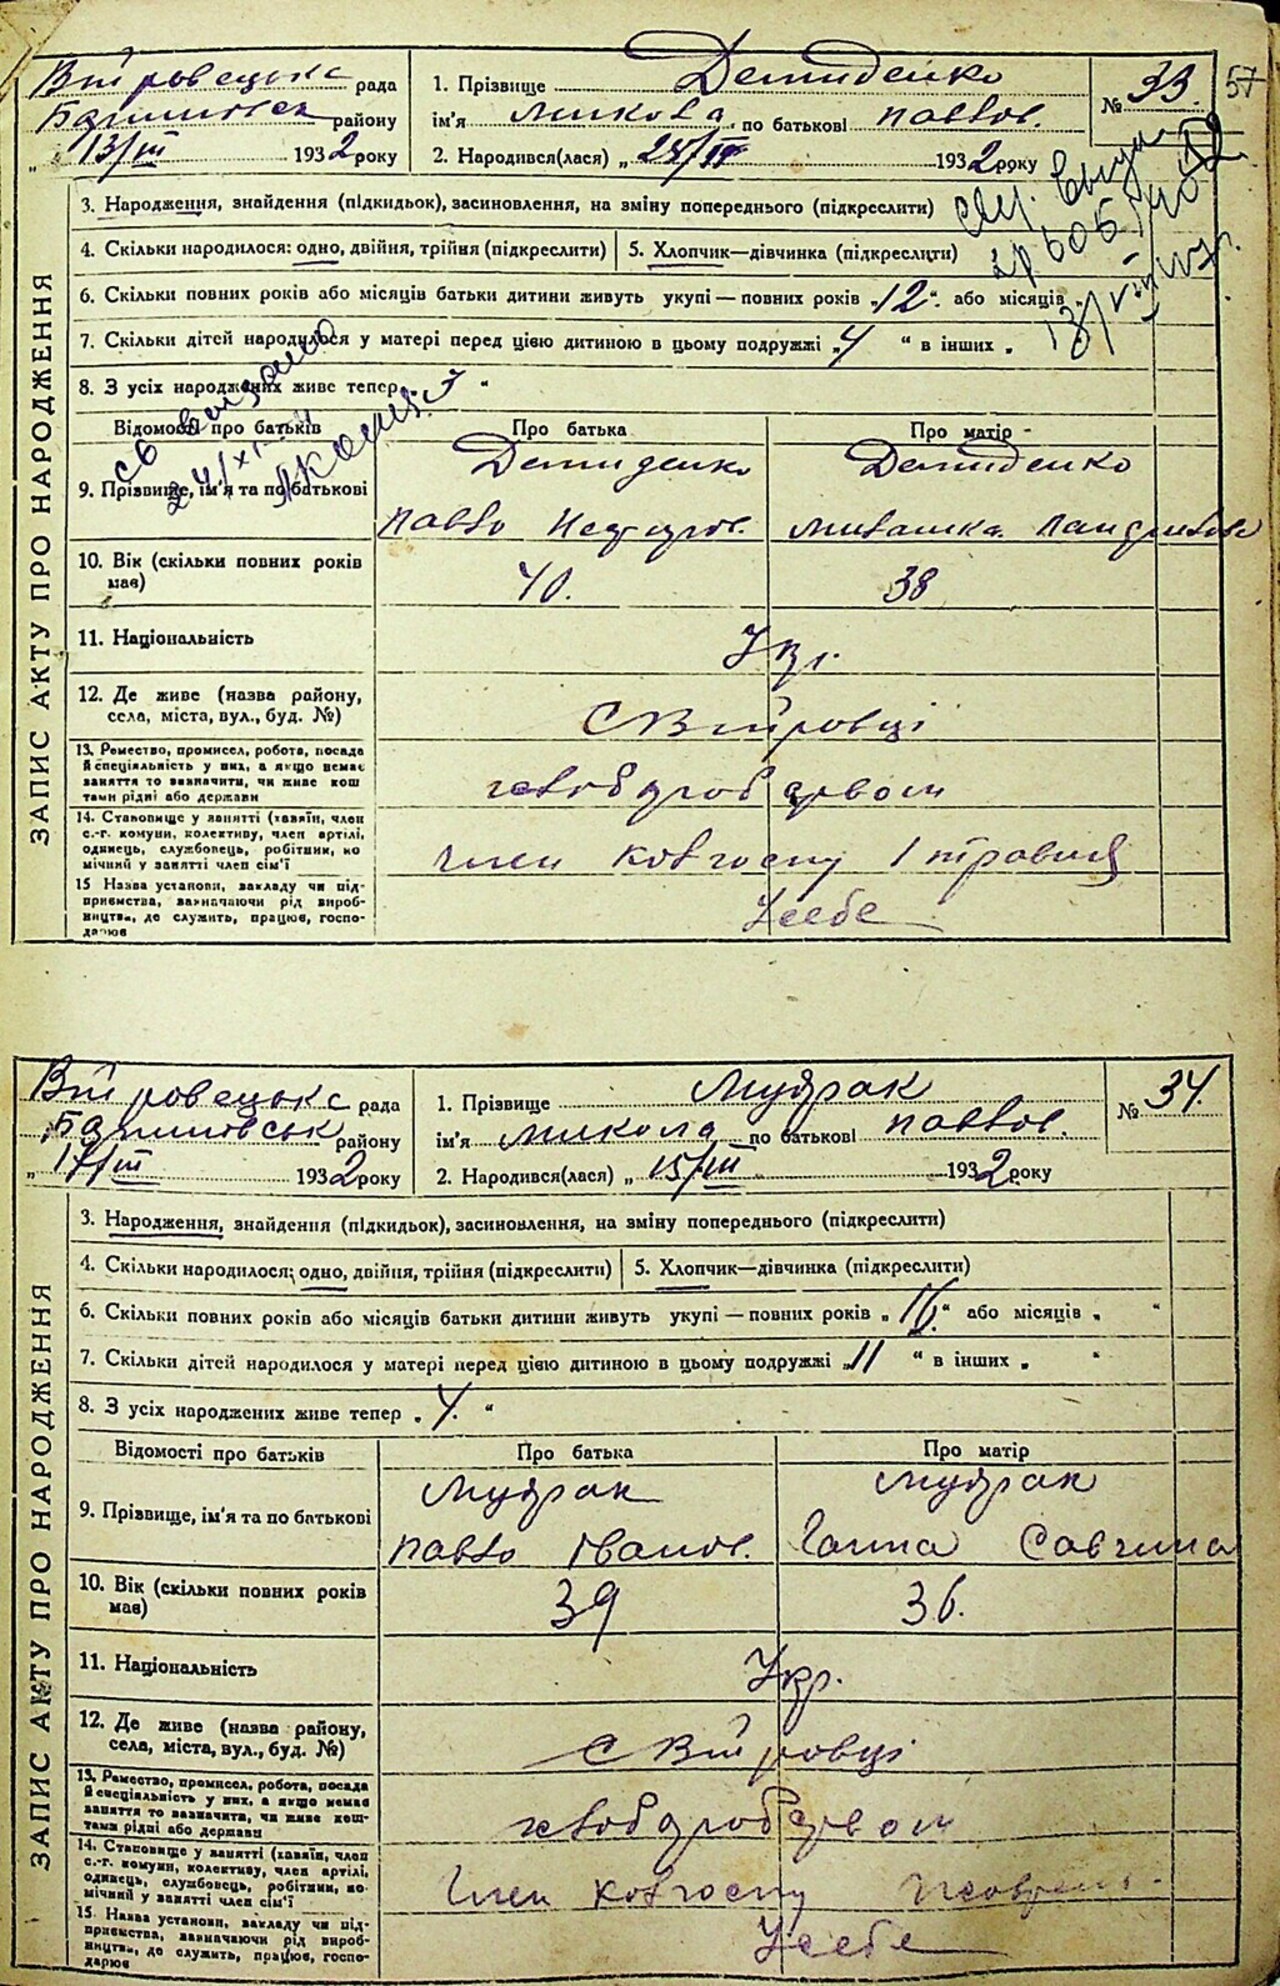 57
Вітровецька рада
района
„ 13/III 1932 року
1. Прізвище Демиденко
ім'я Микола по батькові Павлов.
2. Народився(лася) „ 1932 року
№ 33.
ЗАПИС АКТУ ПРО НАРОДЖЕННЯ
3. Народження, знайдення (підкидьок), засиновлення, на зміну попереднього (підкреслити)
4. Скільки народилося: одно, двійня, трійня (підкреслити)
5. Хлопчик—дівчинка (підкреслити)
6. Скільки повних років або місяців батьки дитини живуть укупі — повних років „12“ або місяців „
7. Скільки дітей народилося у матері перед цією дитиною в цьому подружжі „4“ в інших „
8. З усіх народжених живе тепер „3“
Відомості про батьків Про батька Про матір
9. Прізвище, ім'я та по батькові
Демиденко Демиденко
Павло
10. Вік (скільки повних років має) 40. 38
11. Національність Укр.
12. Де живе (назва району, села, міста, вул., буд. №)
С Вітровці
13. Ремество, промисел, робота, посада
й спеціяльність у них, а якщо немає
заняття то визначити, чи живе кош
тами рідні або держави
хліборобство
14. Становище у занятті (хазяїн, член
с.-г. комуни, колективу, член артілі,
одинець, службовець, робітник, по
мічний у занятті член сім'ї
член колгоспу 1 травня
15 Назва установи, закладу чи під-
приємства, зазначаючи рід вироб-
ництва, де служить, працює, госпо-
дарює
У себе
Вітровецька рада
району
„ 17/III 1932 року
1. Прізвище Мудрак
ім'я Микола по батькові Павлов.
2. Народився(лася) „ 15/III 1932 року
№ 34.
ЗАПИС АКТУ ПРО НАРОДЖЕННЯ
3. Народження, знайдення (підкидьок), засиновлення, на зміну попереднього (підкреслити)
4. Скільки народилося: одно, двійня, трійня (підкреслити)
5. Хлопчик—дівчинка (підкреслити)
6. Скільки повних років або місяців батьки дитини живуть укупі — повних років „16“ або місяців „ “
7. Скільки дітей народилося у матері перед цією дитиною в цьому подружжі „11“ в інших „ “
8. З усіх народжених живе тепер „4.“
Відомості про батьків Про батька Про матір
9. Прізвище, ім'я та по батькові
Мудрак Мудрак
Павло Іванов. Ганна Савчина
10. Вік (скільки повних років має) 39 36.
11. Національність Укр.
12. Де живе (назва району, села, міста, вул., буд. №)
С Вітровці
13. Ремество, промисел, робота, посада
й спеціяльність у них, а якщо немає
заняття то зазначити, чи живе кош-
тами рідні або держави
хліборобство
14. Становище у занятті (хазяїн, член
с.-г. комуни, колективу, член артілі,
одинець, службовець, робітник, по-
мічний у занятті член сім'ї
Член колгоспу
15. Назва установи, закладу чи під-
приємства, зазначаючи рід вироб-
ництва, де служить, працює, госпо-
дарює
У себе